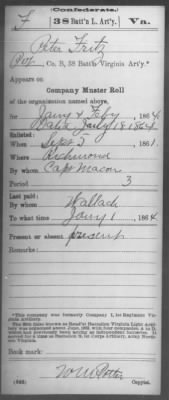 (Confederate.)
F 38 Batt'n L. Art'y. Va.
Peter Fritz
Pvt, Co. B, 38 Batt'n Virginia Art'y.*
Appears on
Company Muster Roll
of the organization named above,
for Jany & Feby, 1864.
Enlisted:
When Sept 5, 1861.
Where Richmond
By whom Capt Macon
Period 3
Last paid:
By whom Wallach
To what time Jany 1, 1864
Present or absent present
Remarks:
*This company was formerly Company I, 1st Regiment Virginia Artillery.
Book mark:
(642) Wm Potter Copyist.